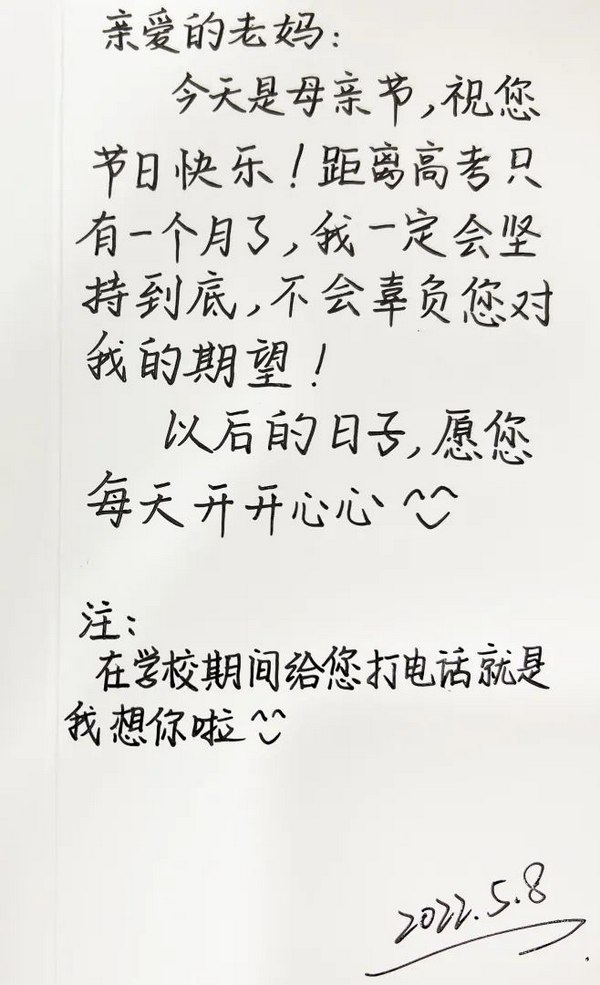 亲爱的老妈:
今天是母亲节,祝您
节日快乐!距离高考只
有一个月了,我一定会坚
持到底,不会辜负您对
我的期望!
以后的日子,愿您
每天开开心心^‿^
注:
在学校期间给您打电话就是
我想你啦^‿^
2022.5.8